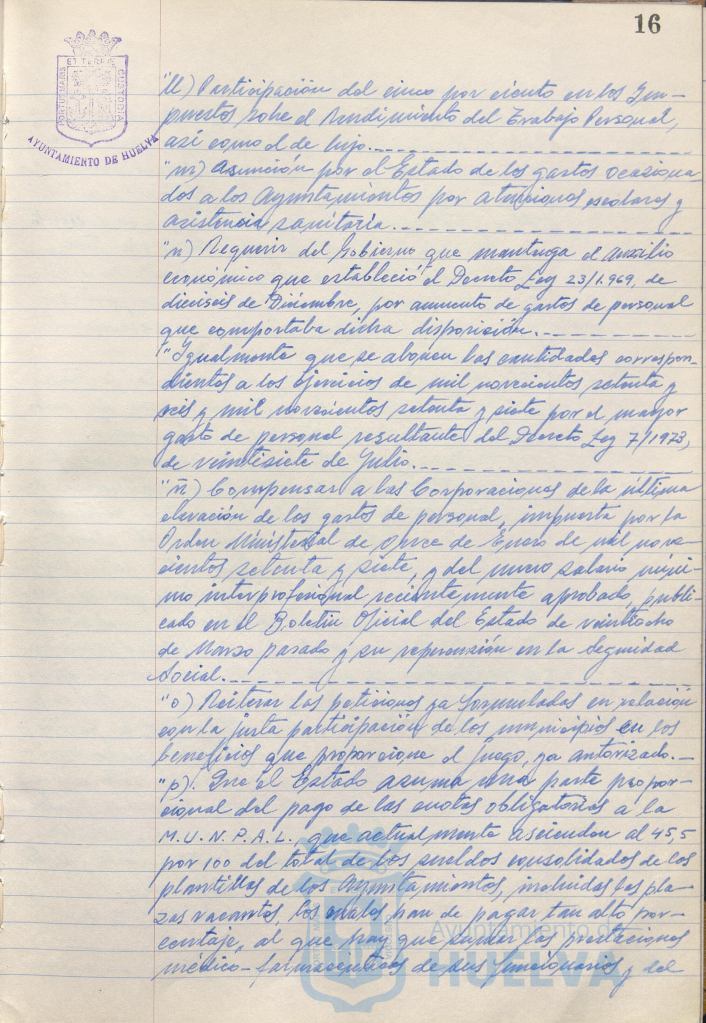 16
PORTUS MARIS ET TERRAE CUSTODIA
AYUNTAMIENTO DE HUELVA
"ll) Participación del cinco por ciento en los Im-
puestos sobre el Rendimiento del Trabajo Personal,
así como el de lujo.
"m) Asunción por el Estado de los gastos ocasiona-
dos a los Ayuntamientos por atenciones escolares y
asistencia sanitaria.
"n) Requerir del Gobierno que mantenga el auxilio
económico que estableció el Decreto Ley 23/1.969, de
dieciseis de Diciembre, por aumento de gastos de personal
que comportaba dicha disposición.
"Igualmente que se abonen las cantidades correspon-
dientes a los ejercicios de mil novecientos setenta y
seis y mil novecientos setenta y siete por el mayor
gasto de personal resultante del Decreto Ley 7/1973,
de veintisiete de Julio.
"ñ) Compensar a las Corporaciones de la última
elevación de los gastos de personal, impuesta por la
Orden Ministerial de once de Enero de mil nove-
cientos setenta y siete, y del nuevo salario míni-
mo interprofesional recientemente aprobado, publi-
cado en el Boletin Oficial del Estado de veintiocho
de Marzo pasado y su repercusión en la Seguridad
Social.
"o) Reiterar las peticiones ya formuladas en relación
con la justa participación de los municipios en los
beneficios que proporcione el juego, ya autorizado.
"p). Que el Estado asuma una parte propor-
cional del pago de las cuotas obligatorias a la
M.U.N.P.A.L., que actualmente ascienden al 45,5
por 100 del total de los sueldos consolidados de las
plantillas de los Ayuntamientos, incluidas las pla-
zas vacantes, los cuales han de pagar tan alto por-
centaje, al que hay que sumar las prestaciones
médico-farmacéuticas de sus funcionarios y del
Ayuntamiento de
HUELVA